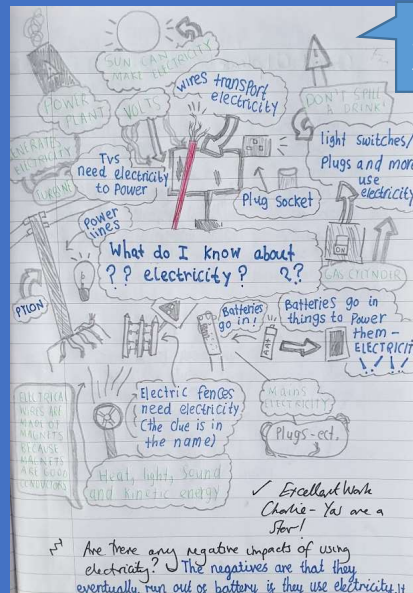 SUN CAN
MAKE ELECTRICITY
wires transport
electricity
POWER
PLANT
VOLTS
DON'T SPILL
A DRINK!
GENERATES
ELECTRICITY
TURBINE
TVs
need electricity
to Power
light switches/
Plugs and more
use
electricity
Plug Socket
Power
lines
What do I know about
?? electricity? ??
ON
GAS CYLINDER
PTION
Batteries
go in!
Batteries go in
things to Power
them –
ELECTRICIT
!!!!
AA+
ELECTRICAL
WIRES ARE
MADE OF
MAGNETS
BECAUSE
MAGNETS
ARE GOOD
CONDUCTORS
Electric fences
need electricity
(the clue is in
the name)
MAINS
ELECTRICITY
Plugs-ect.
Heat, light, Sound
and kinetic energy
✓ Excellent Work
Charlie – You are a
Star!
Are there any negative impacts of using
electricity? The negatives are that they
eventually run out of battery is they use electricity. It